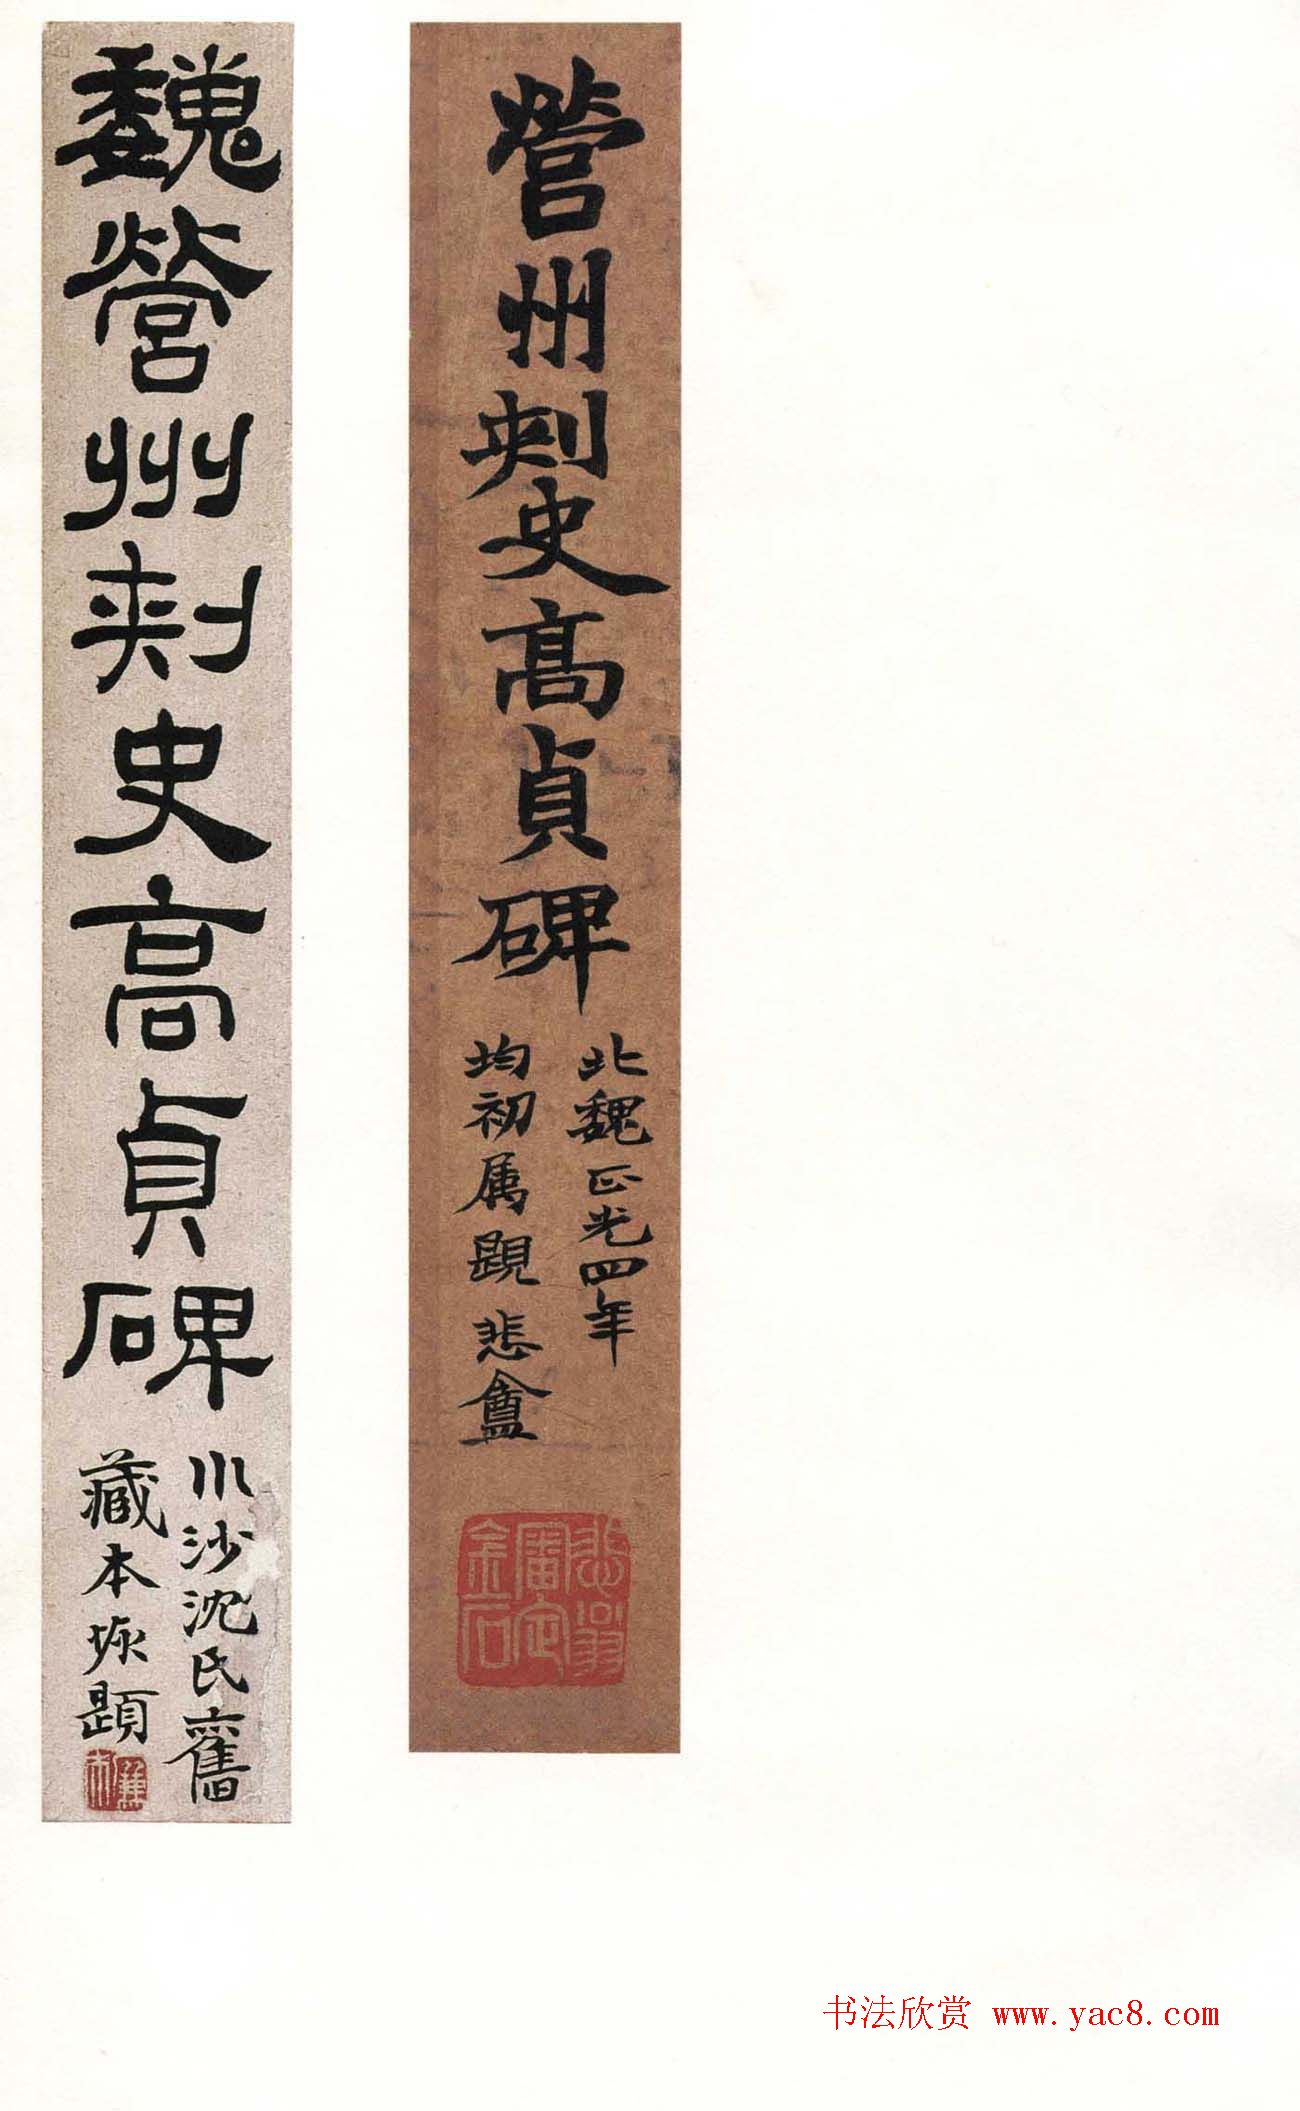 營州刾史高貞碑
北魏正光四年
均初属題 悲盦
悲翁審定金石
魏營州刾史高貞碑
川沙沈氏舊
藏本 題
书法欣赏 www.yac8.com